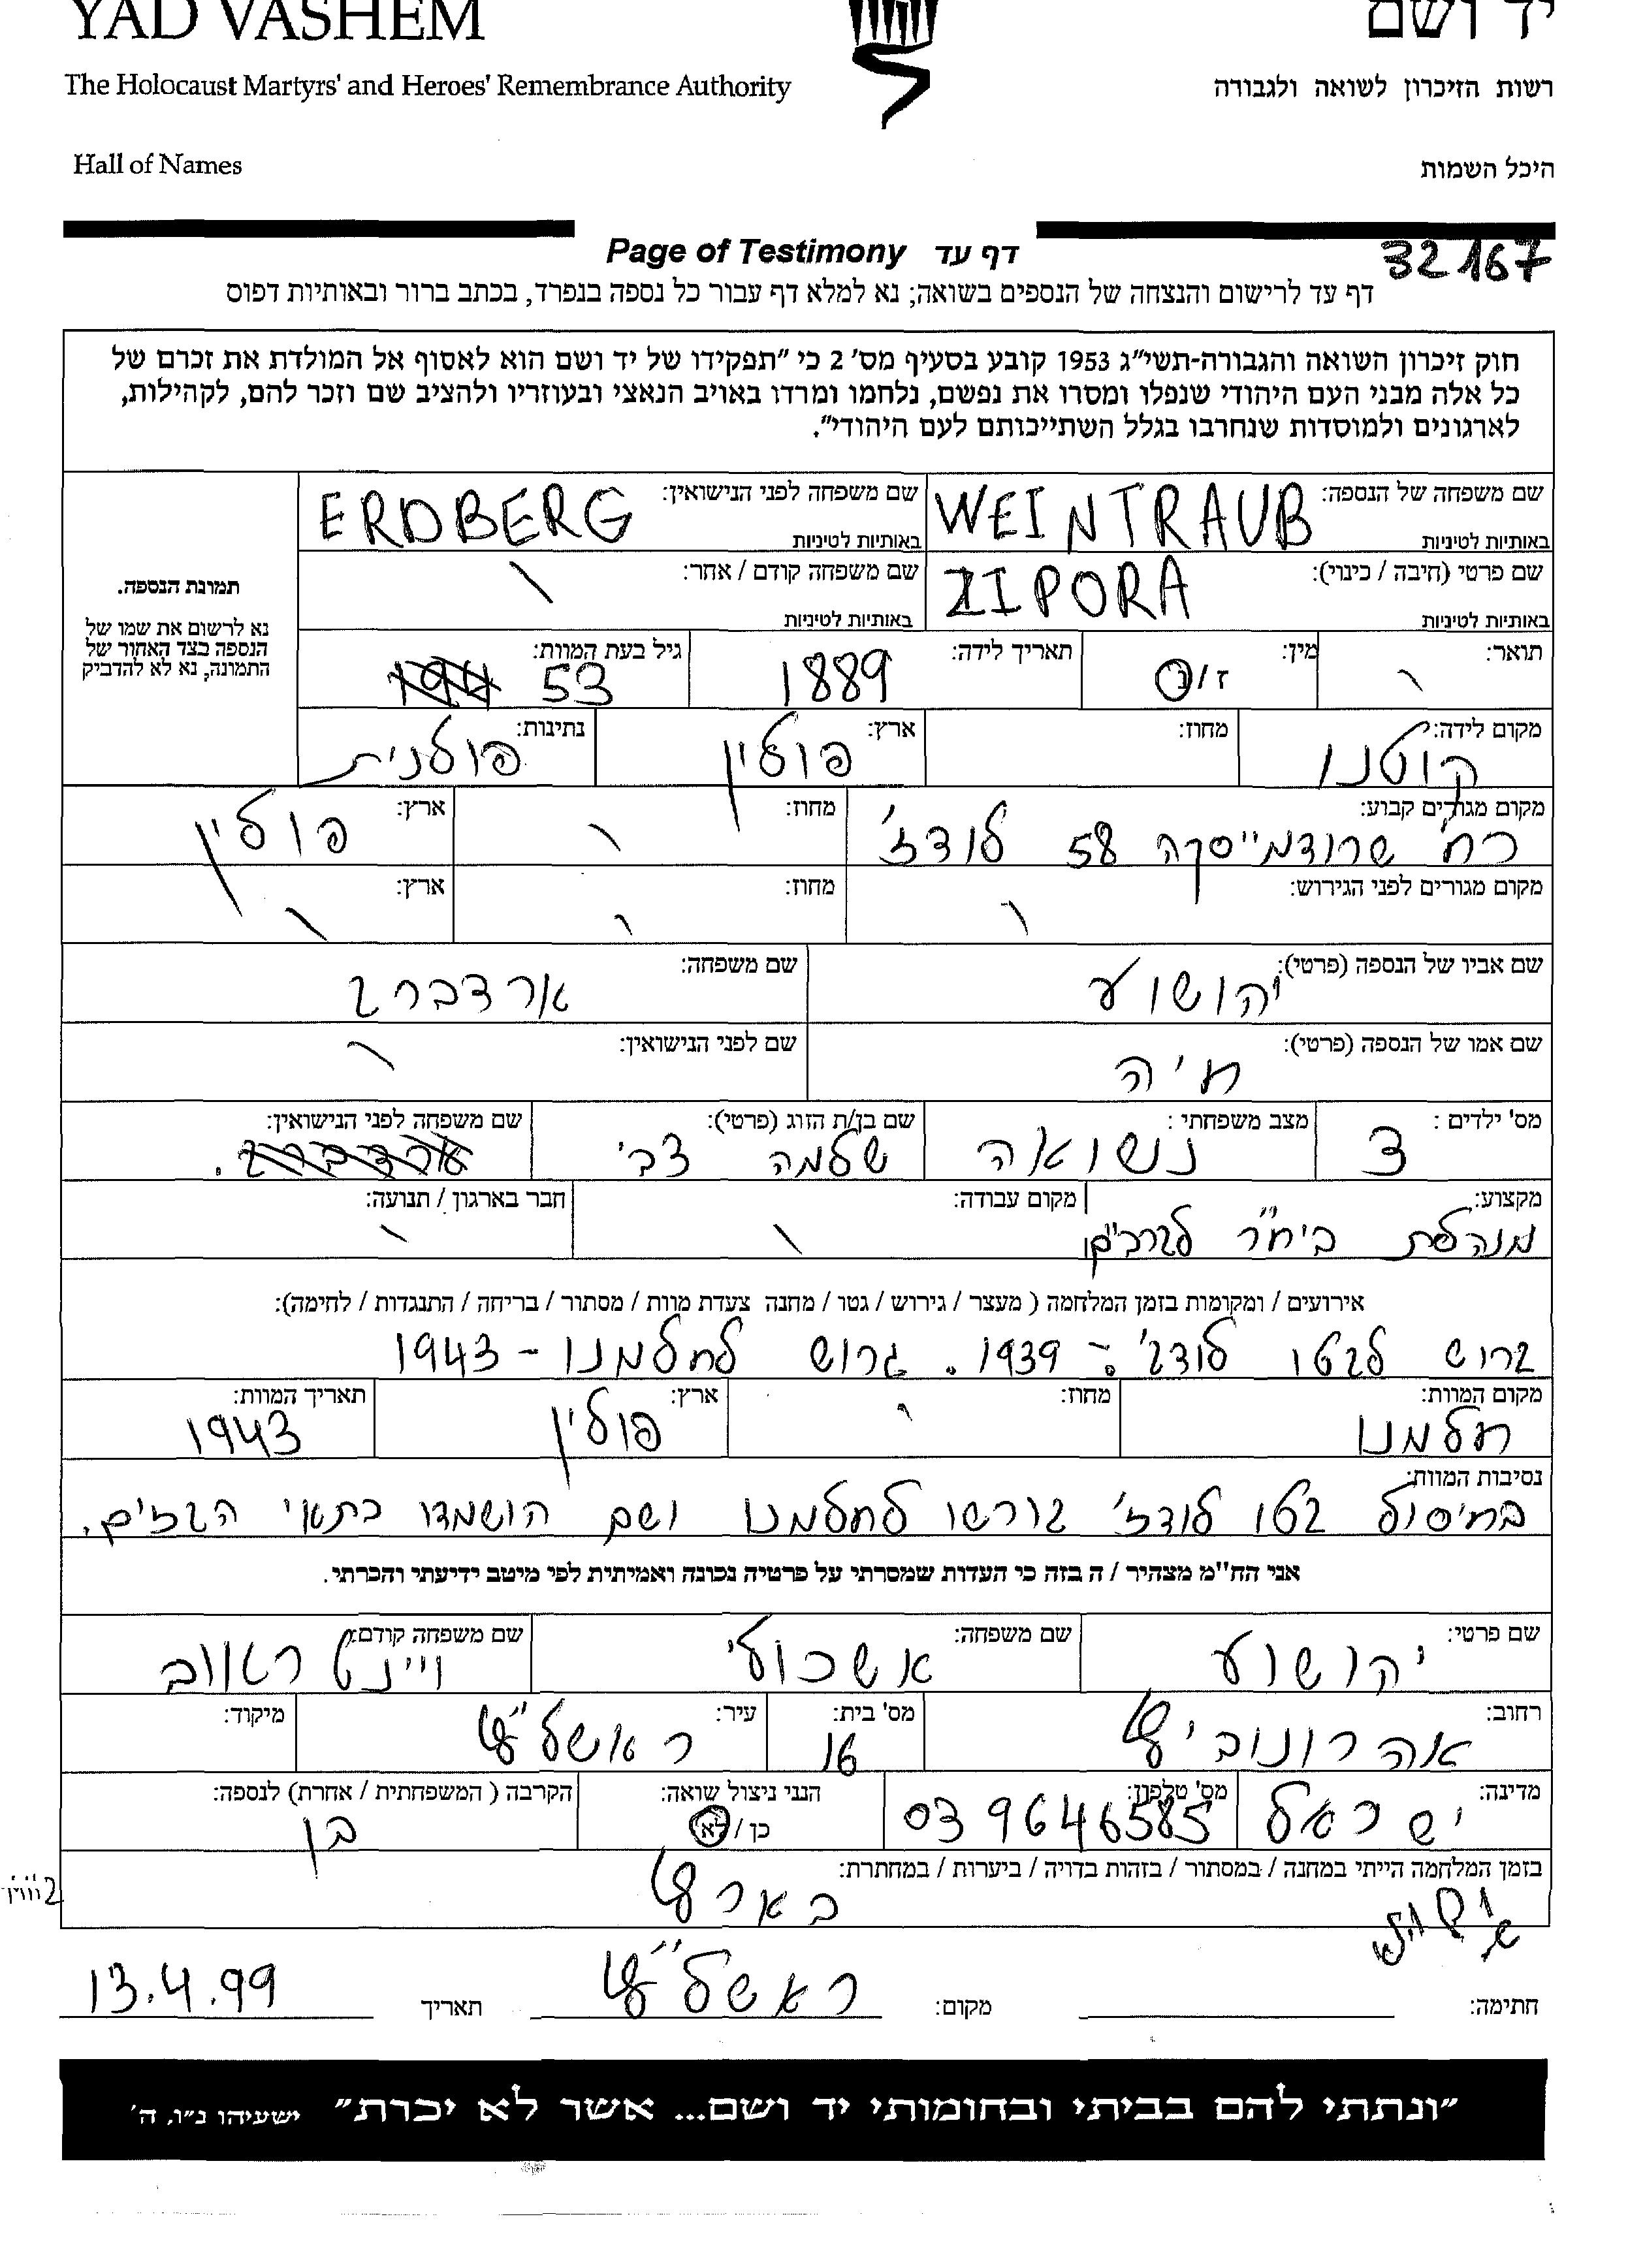 YAD VASHEM יד ושם
The Holocaust Martyrs' and Heroes' Remembrance Authority רשות הזיכרון לשואה ולגבורה
Hall of Names היכל השמות
Page of Testimony דף עד
32167
דף עד לרישום והנצחה של הנספים בשואה; נא למלא דף עבור כל נספה בנפרד, בכתב ברור ובאותיות דפוס
חוק זיכרון השואה והגבורה-תשי"ג 1953 קובע בסעיף מס' 2 כי "תפקידו של יד ושם הוא לאסוף אל המולדת את זכרם של
כל אלה מבני העם היהודי שנפלו ומסרו את נפשם, נלחמו ומרדו באויב הנאצי ובעוזריו ולהציב שם וזכר להם, לקהילות,
לארגונים ולמוסדות שנחרבו בגלל השתייכותם לעם היהודי".
שם משפחה של הנספה: WEINTRAUB שם משפחה לפני הנישואין: ERDBERG
באותיות לטיניות באותיות לטיניות
שם פרטי (חיבה / כינוי): ZIPORA שם משפחה קודם / אחר: \
באותיות לטיניות באותיות לטיניות
תמונת הנספה.
נא לרשום את שמו של
הנספה בצד האחור של
התמונה, נא לא להדביק
תואר: \ מין: ז/נ תאריך לידה: 1889 גיל בעת המוות: 53 1941
מקום לידה: קוטנו מחוז: ארץ: פולין נתינות: פולנית
מקום מגורים קבוע: רח' שרודמייסקה 58 לודז' מחוז: \ ארץ: פולין
מקום מגורים לפני הגירוש: \ מחוז: \ ארץ: \
שם אביו של הנספה (פרטי): יהושוע שם משפחה: ארדברג
שם אמו של הנספה (פרטי): חיה שם לפני הנישואין: \
מס' ילדים : 3 מצב משפחתי : נשואה שם בן/ת הזוג (פרטי): שלמה צבי שם משפחה לפני הנישואין: ארדברג.
מקצוע: מנהלת ביח"ר לגרביים מקום עבודה: \ חבר בארגון / תנועה: \
אירועים / ומקומות בזמן המלחמה ( מעצר / גירוש / גטו / מחנה צעדת מוות / מסתור / בריחה / התנגדות / לחימה):
גרוש לגטו לודג' - 1939. גרוש לחלמנו - 1943
מקום המוות: חלמנו מחוז: \ ארץ: פולין תאריך המוות: 1943
נסיבות המוות:
בחיסול גטו לודז' גורשו לחלמנו ושם הושמדו בתאי הגזים.
אני הח"מ מצהיר / ה בזה כי העדות שמסרתי על פרטיה נכונה ואמיתית לפי מיטב ידיעתי והכרתי.
שם פרטי: יהושוע שם משפחה: אשכולי שם משפחה קודם: ויינטראוב
רחוב: אהרונוביץ מס' בית: 16 עיר: ראשל"צ מיקוד:
מדינה: ישראל מס' טלפון: 03 9646585 הנני ניצול שואה: כן / לא הקרבה ( המשפחתית / אחרת) לנספה: בן
בזמן המלחמה הייתי במחנה / במסתור / בזהות בדויה / ביערות / במחתרת:
בארץ
חתימה: מקום: ראשל"צ תאריך 13.4.99
"ונתתי להם בביתי ובחומותי יד ושם... אשר לא יכרת" ישעיהו נ"ו, ה'